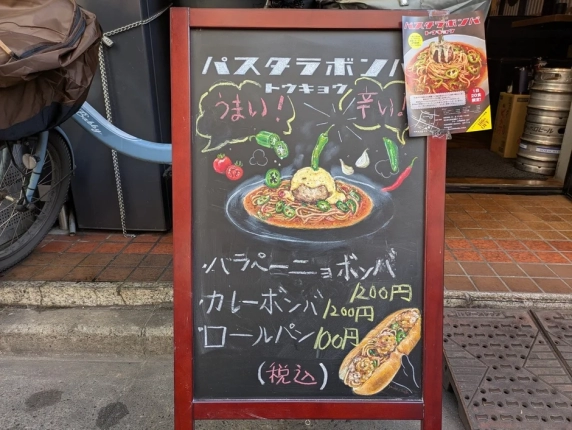 パスタラボンバ
トウキョウ
うまい!
辛い!
ハラペーニョボンバ
1200円
カレーボンバ 1200円
ロールパン 100円
(税込)
パスタラボンバ